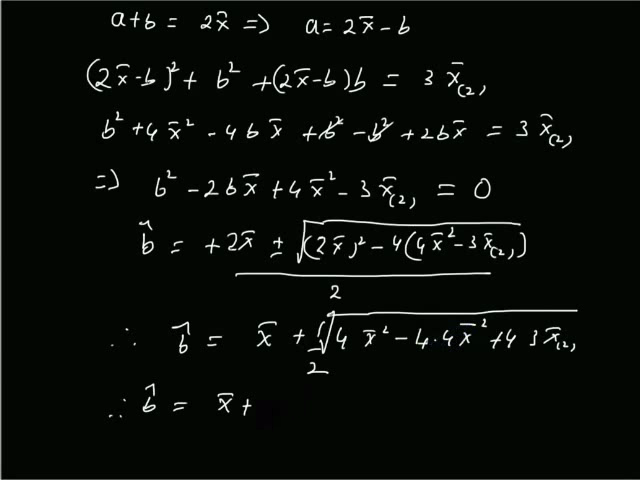 a+b = 2x̄ => a = 2x̄-b
(2x̄-b)² + b² + (2x̄-b)b = 3x̄₍₂₎
b² + 4x̄² - 4bx̄ + b² - b² + 2bx̄ = 3x̄₍₂₎
=> b² - 2bx̄ + 4x̄² - 3x̄₍₂₎ = 0
b̂ = +2x̄ ± √((2x̄)² - 4(4x̄² - 3x̄₍₂₎))
2
∴ b̂ = x̄ + 1/2 √(4x̄² - 4.4x̄² + 4 3x̄₍₂₎
∴ b̂ = x̄ +